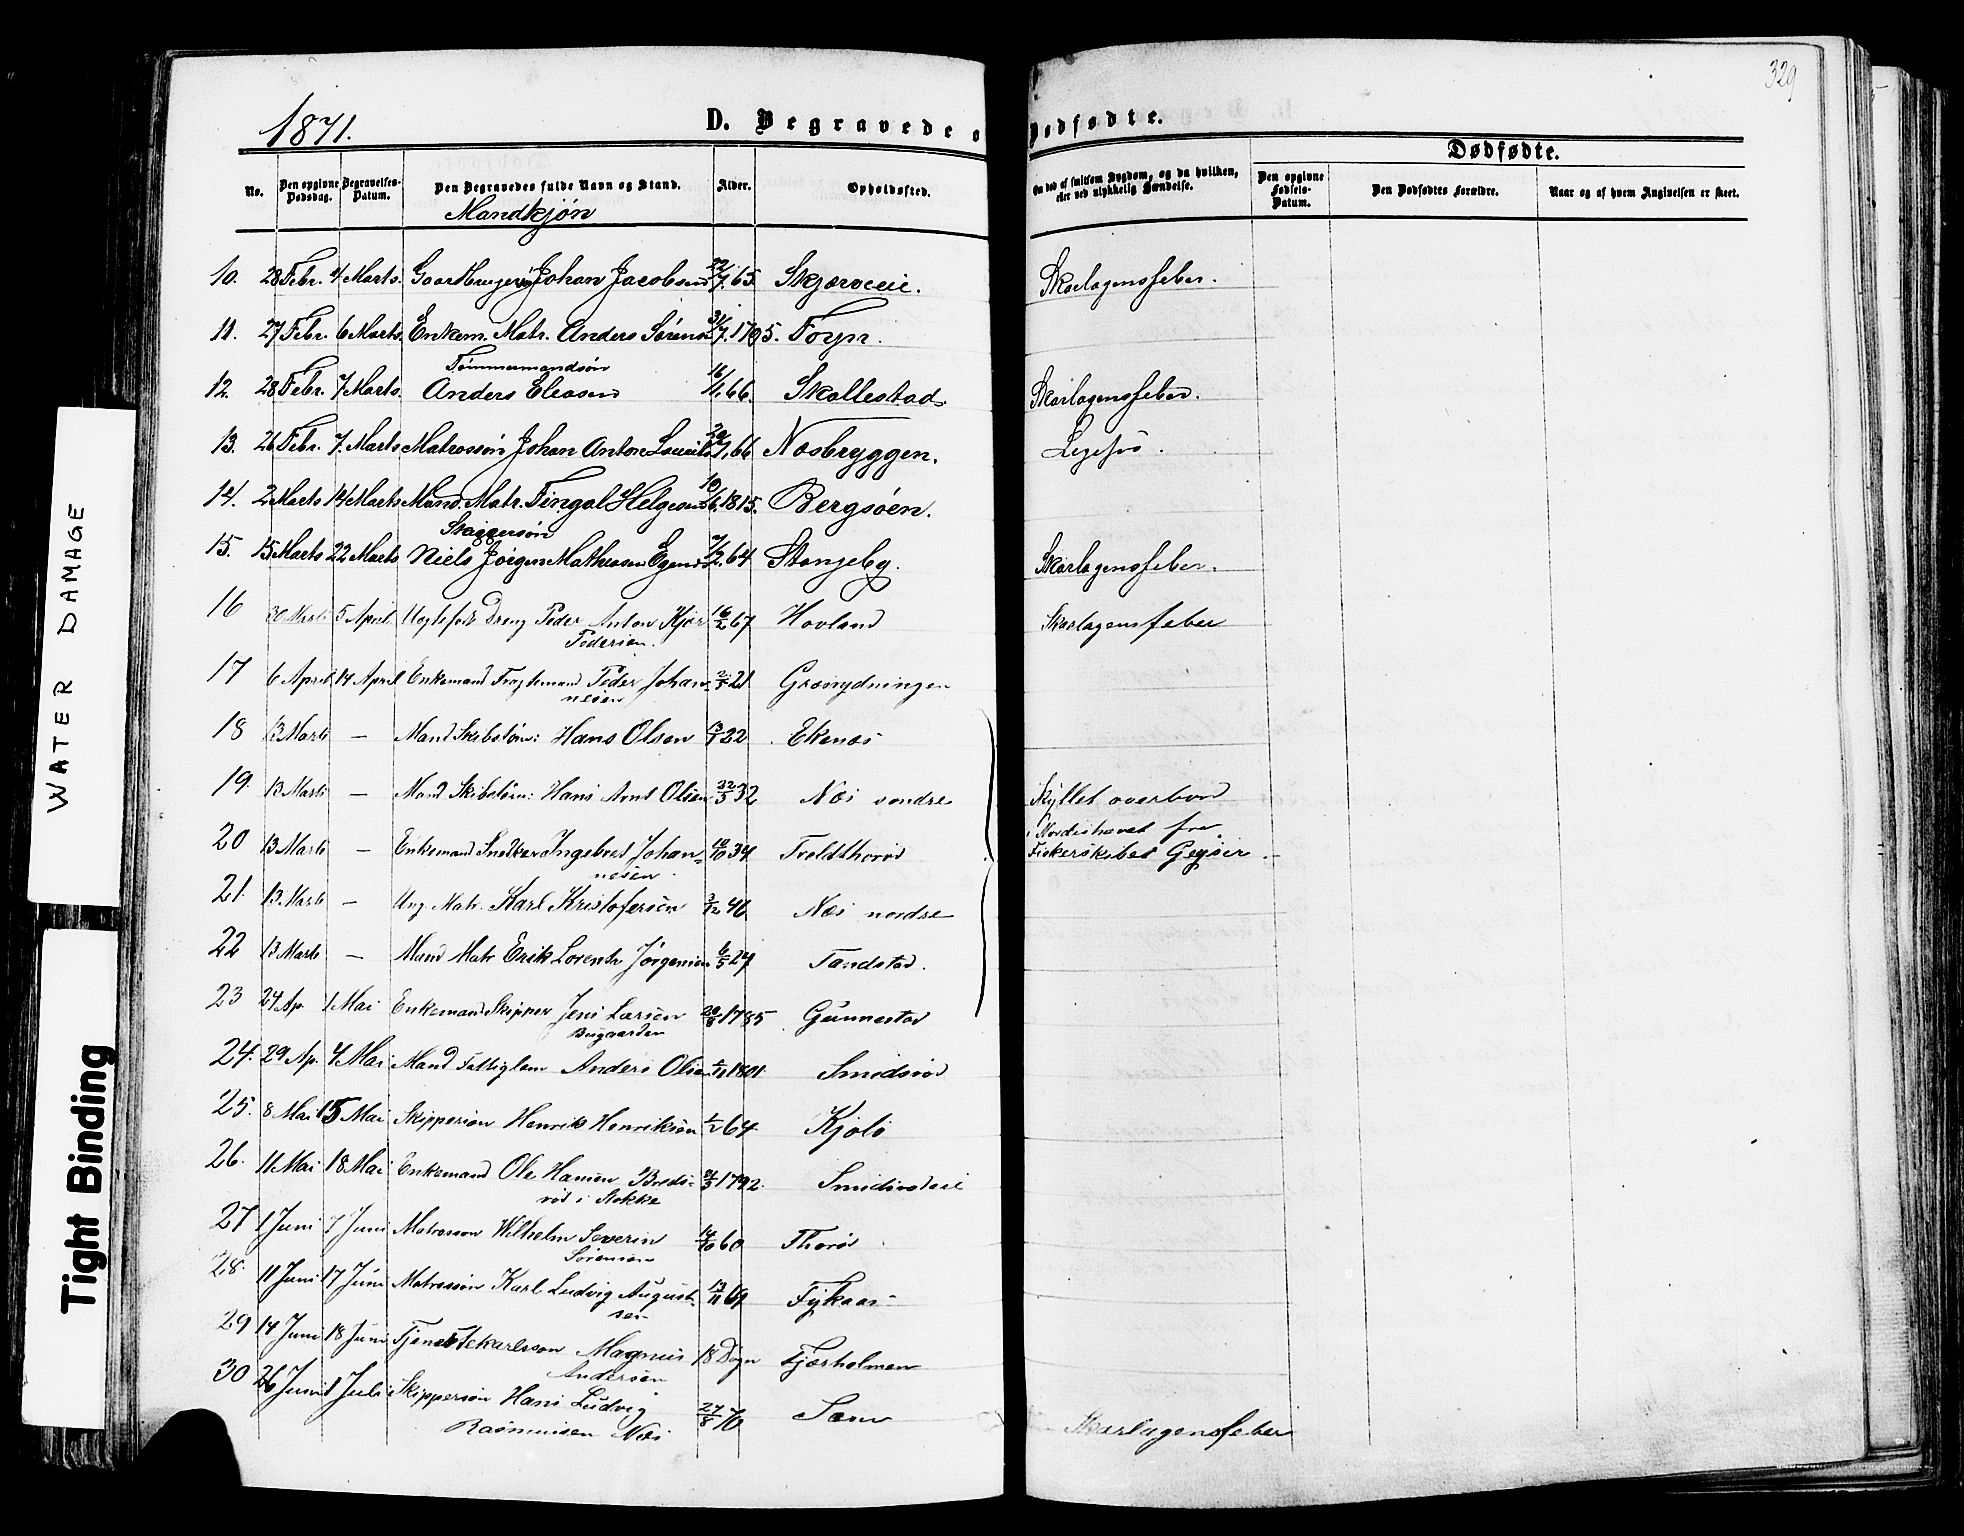 329
1871.
D. Begravede o Dødfødte.
Dødfødte.
No. Den opgivne Dødsdag. Begravelses-Datum. Den Begravedes fulde Navn og Stand. Alder. Opholdssted. Om død af smitsom Sygdom, og da hvilken, eller ved ulykkelig Hændelse. Den opgivne Fødsels-Datum. Den Dødfødtes Forældre. Naar og af hvem Angivelsen er skeet.
Mandkjøn
10. 28 Febr. 4 Marts. Johan Jacobsen 65. Skjærveie. Skarlagensfeber.
11. 27 Febr. 6 Marts. Enkem. Matr. Anders Sørensen 31/7.1795. Foyn.
Tømmermandsøn
12. 28 Febr. 7 Marts. Anders Eleasen 16/11.66. Skallestad. Skarlagensfeber.
13. 26 Febr. 7. Marts Matrossøn Johan Anton 66 Næsbryggen.
14. 2 Marts 14 Marts Mand. Matr. Fingal Helgesen 10/6.1815. Bergsøen.
Skippersøn
15. 15 Marts 22 Marts Niels Jørgen Mathiasen 64 Stangeby. Skarlagensfeber.
16 30 Marts 5 April Uægtefødt Dreng Peder Anton Hjør 16/2 67 Hovland Skarlagensfeber
Pedersen.
17 6 April 14 April Enkemand Fragtemand Peder Johan= 21. Grønrydningen
nesen
18 13 Marts — Mand Skibstøm: Hans Olsen 22 Ekenæs
19. 13 Marts — Mand Skibstøm: Hans Arnt Olsen 22/5 32 Næs søndre Skyllet overbord
20 13 Marts — Enkemand Snedker Ingebret Johan= 34 Troldthorød i Nordishavet fra
nesen. Fiskerskibet Geysir.
21. 13 Marts — Ung. Matr. Karl Kristofersen 3/12 46 Næs nordre
22 13 Marts — Mand Matr Erik Lorents Jørgensen 6/5 27 Tandstad.
23 24 Ap. 1 Mai Enkemand Skipper Jens Larsen 1785 Gunnestad
Bugaarden
24. 29 Ap. 4 Mai Mand Fattiglem Anders Olsen 1801 Smidsrød
25. 8 Mai 15 Mai Skippersøn Henrik Henriksen 64 Kjolø
26. 11 Mai 18 Mai Enkemand Ole Hansen Breds= 1792.
rød i Stokke
27 1 Juni 7 Juni Matrossøn Wilhelm Severin 14/10 60 Thorød
Sørensen
28. 11 Juni 17 Juni Matrossøn Karl Ludvig August= 13/11 69 Fykaas
sen
29 14 Juni 18 Juni Tjenestekarlssøn Magnus 18 Døgn Fjærholmen
Andersen
30 26 Juni 1 Juli Skippersøn Hans Ludvig 27/8 70 Sæm Skarlagensfeber
Rasmussen Næs
WATER DAMAGE
Tight Binding